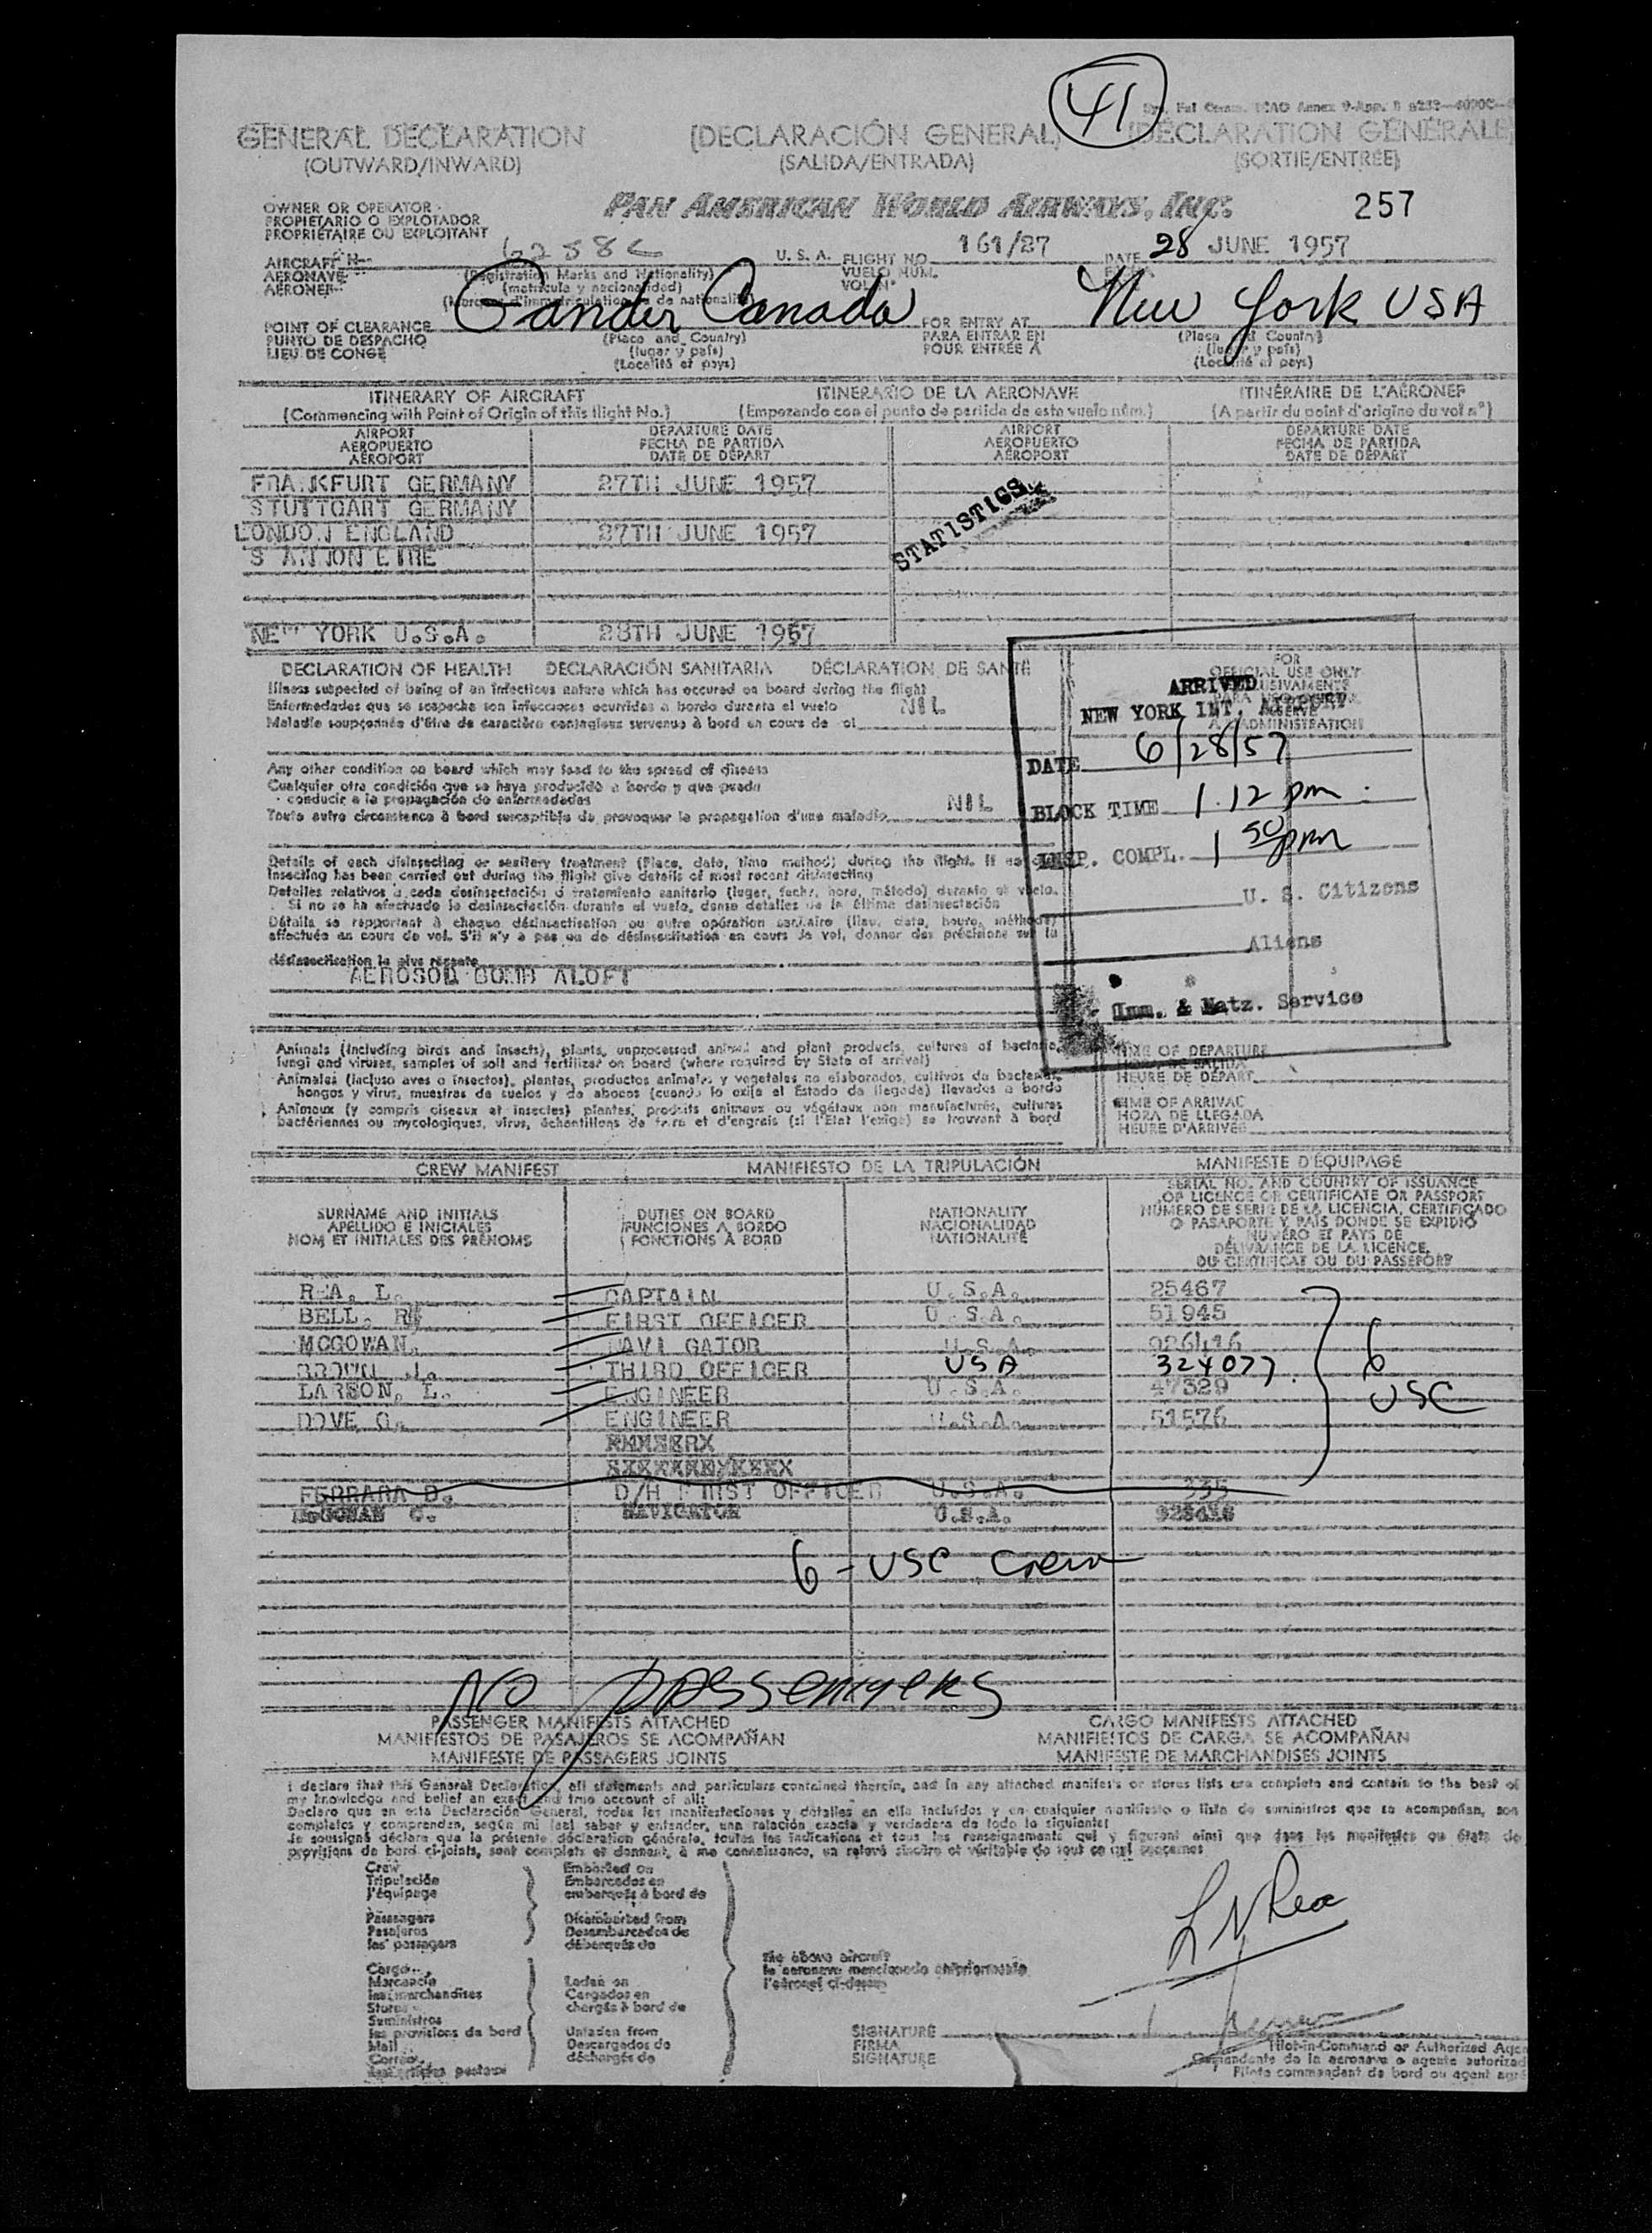 41
GENERAL DECLARATION (DECLARACIÓN GENERAL) (DÉCLARATION GÉNÉRALE)
(OUTWARD/INWARD) (SALIDA/ENTRADA) (SORTIE/ENTRÉE)
OWNER OR OPERATOR PAN AMERICAN WORLD AIRWAYS, INC. 257
PROPIETARIO O EXPLOTADOR
PROPRIÉTAIRE OU EXPLOITANT
AIRCRAFT N- U.S.A. FLIGHT NO. 161/27 DATE 28 JUNE 1957
AERONAVE (Registration Marks and Nationality) VUELO NÚM.
AÉRONEF (matrícula y nacionalidad) VOL Nº
(Marques d'immatriculation et de nationalité)
POINT OF CLEARANCE Gander Canada FOR ENTRY AT New York USA
PUNTO DE DESPACHO (Place and Country) PARA ENTRAR EN (Place and Country)
LIEU DE CONGÉ (lugar y país) POUR ENTRÉE A (lugar y país)
(Localité et pays) (Localité et pays)
ITINERARY OF AIRCRAFT ITINERARIO DE LA AERONAVE ITINÉRAIRE DE L'AÉRONEF
(Commencing with Point of Origin of this flight No.) (Empezando con el punto de partida de este vuelo núm.) (A partir du point d'origine du vol nº)
AIRPORT DEPARTURE DATE AIRPORT DEPARTURE DATE
AEROPUERTO FECHA DE PARTIDA AEROPUERTO FECHA DE PARTIDA
AÉROPORT DATE DE DÉPART AÉROPORT DATE DE DÉPART
FRANKFURT GERMANY 27TH JUNE 1957
STUTTGART GERMANY
LONDON ENGLAND 27TH JUNE 1957
S ANNON EIRE
STATISTICS
NEW YORK U.S.A. 28TH JUNE 1957
DECLARATION OF HEALTH DECLARACIÓN SANITARIA DÉCLARATION DE SANTÉ
Illness suspected of being of an infectious nature which has occured on board during the flight
Enfermedades que se sospecha son infecciosas ocurridas a bordo durante el vuelo NIL
Maladie soupçonnée d'être de caractère contagieux survenue à bord en cours de vol
FOR
OFFICIAL USE ONLY
ADMINISTRATION
ARRIVED
NEW YORK INT. AIRPORT
DATE 6/28/57
BLOCK TIME 1.12 pm.
INSP. COMPL. 1 50 pm
U. S. Citizens
Aliens
Imm. & Natz. Service
Any other condition on board which may lead to the spread of disease
Cualquier otra condición que se haya producido a bordo y que pueda
conducir a la propagación de enfermedades NIL
Toute autre circonstance à bord susceptible de provoquer la propagation d'une maladie
Details of each disinsecting or sanitary treatment (Place, date, time method) during the flight. If no
insecting has been carried out during the flight give details of most recent disinsecting
Detalles relativos a cada desinsectación o tratamiento sanitario (lugar, fecha, hora, método) durante el vuelo.
Si no se ha efectuado la desinsectación durante el vuelo, dense detalles de la última desinsectación
Détails se rapportant à chaque désinsectisation ou autre opération sanitaire (lieu, date, heure, méthode)
effectuée au cours de vol. S'il n'y a pas eu de désinsectisation en cours de vol, donner des précisions sur la
désinsectisation la plus récente
AEROSOL BOMB ALOFT
Animals (including birds and insects), plants, unprocessed animal and plant products, cultures of bacteria,
fungi and viruses, samples of soil and fertilizer on board (where required by State of arrival)
Animales (incluso aves o insectos), plantas, productos animales y vegetales no elaborados, cultivos de bacterias,
hongos y virus, muestras de suelos y de abonos (cuando lo exija el Estado de llegada) llevados a bordo
Animaux (y compris oiseaux et insectes) plantes, produits animaux ou végétaux non manufacturés, cultures
bactériennes ou mycologiques, virus, échantillons de terre et d'engrais (si l'État l'exige) se trouvant à bord
TIME OF DEPARTURE
HORA DE SALIDA
HEURE DE DÉPART
TIME OF ARRIVAL
HORA DE LLEGADA
HEURE D'ARRIVÉE
CREW MANIFEST MANIFIESTO DE LA TRIPULACIÓN MANIFESTE D'ÉQUIPAGE
SURNAME AND INITIALS DUTIES ON BOARD NATIONALITY SERIAL NO. AND COUNTRY OF ISSUANCE
APELLIDO E INICIALES FUNCIONES A BORDO NACIONALIDAD OF LICENCE OR CERTIFICATE OR PASSPORT
NOM ET INITIALES DES PRÉNOMS FONCTIONS À BORD NATIONALITÉ NÚMERO DE SERIE DE LA LICENCIA, CERTIFICADO
O PASAPORTE Y PAÍS DONDE SE EXPIDIÓ
NUMÉRO ET PAYS DE
DÉLIVRANCE DE LA LICENCE,
DU CERTIFICAT OU DU PASSEPORT
REA, L. CAPTAIN U.S.A. 25467
BELL, R FIRST OFFICER U.S.A. 51945
MCGOWAN, NAVIGATOR U.S.A. 026416
BROWN J. THIRD OFFICER USA 324077
LARSON, L. ENGINEER U.S.A. 47329
DOVE, G. ENGINEER U.S.A. 51576
6
USC
FERRARA D. D/H FIRST OFFICER U.S.A. 335
MCGOWAN C. NAVIGATOR U.S.A.
6 - USC Crew
No passengers
PASSENGER MANIFESTS ATTACHED CARGO MANIFESTS ATTACHED
MANIFIESTOS DE PASAJEROS SE ACOMPAÑAN MANIFIESTOS DE CARGA SE ACOMPAÑAN
MANIFESTE DE PASSAGERS JOINTS MANIFESTE DE MARCHANDISES JOINTS
I declare that this General Declaration, all statements and particulars contained therein, and in any attached manifests or stores lists are complete and contain to the best of
my knowledge and belief an exact and true account of all:
Declaro que en esta Declaración General, todas las manifestaciones y detalles en ella incluidos y en cualquier manifiesto o lista de suministros que se acompañan, son
completos y comprenden, según mi leal saber y entender, una relación exacta y verdadera de todo lo siguiente:
Je soussigné déclare que la présente déclaration générale, toutes les indications et tous les renseignements qui y figurent ainsi que dans les manifestes ou états de
provisions de bord ci-joints, sont complets et donnent, à ma connaissance, un relevé sincère et véritable de tout ce qui concerne:
Crew Embarked on
Tripulación Embarcados en
l'équipage embarqués à bord de
Passengers Disembarked from
Pasajeros Desembarcados de
les passagers débarqués de
Cargo The above aircraft
Mercancía Laden on la aeronave mencionada anteriormente
les marchandises Cargados en l'aéronef ci-dessus
Stores chargés à bord de
Suministros
les provisions de bord Unladen from
Mail Descargados de
Correo déchargés de
L N Rea
SIGNATURE
FIRMA
SIGNATURE
Pilot-in-Command or Authorized Agen
Comandante de la aeronave o agente autorizad
Pilote commandant de bord ou agent agré